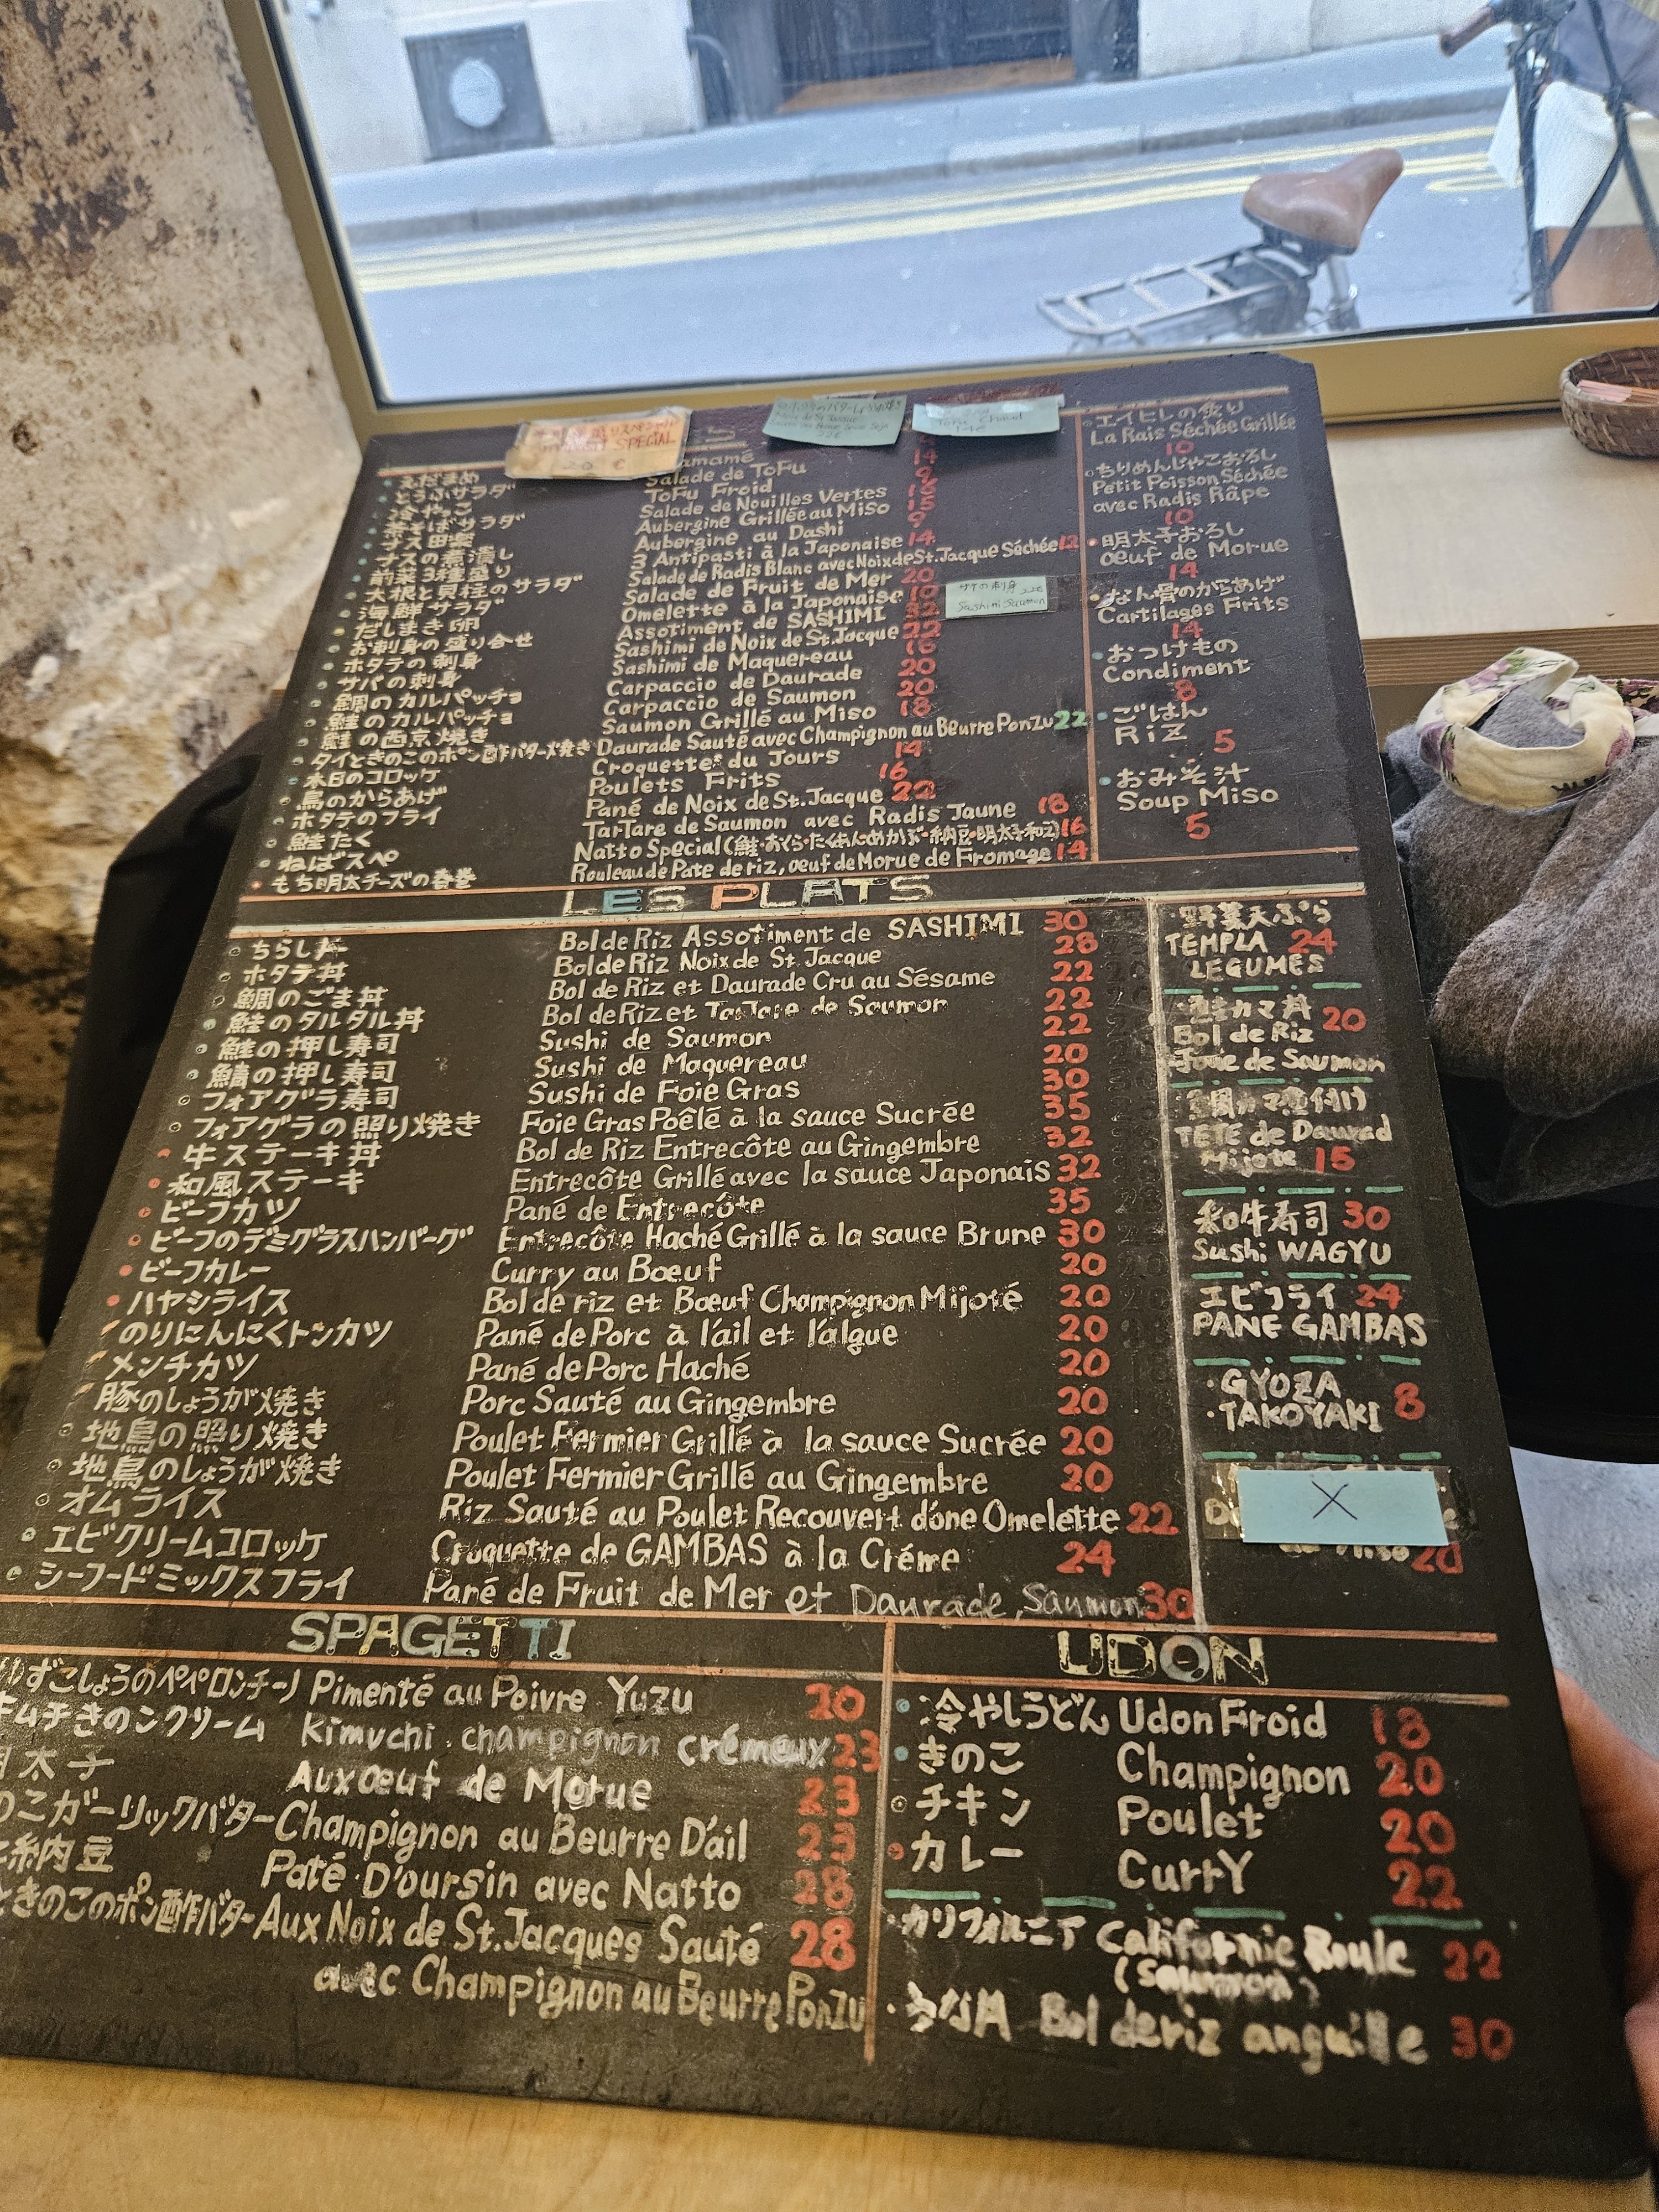 SPECIAL
20 €
22€
Tofu Chaud
14€
・えだまめ
・とうふサラダ Salade de ToFu
・冷やっこ ToFu Froid
・茶そばサラダ Salade de Nouilles Vertes
・ナス田楽 Aubergine Grillée au Miso
・ナスの煮浸し Aubergine au Dashi
・前菜3種盛り 3 Antipasti à la Japonaise 14
・大根と貝柱のサラダ Salade de Radis Blanc avec Noix de St.Jacque Séchée 12
・海鮮サラダ Salade de Fruit de Mer 20
・だしまき卵 Omelette à la Japonaise 10
・お刺身の盛り合せ Assotiment de SASHIMI 32
・ホタテの刺身 Sashimi de Noix de St.Jacque 22
・サバの刺身 Sashimi de Maquereau 16
・鯛のカルパッチョ Carpaccio de Daurade 20
・鮭のカルパッチョ Carpaccio de Saumon 20
・鮭の西京焼き Saumon Grillé au Miso 18
・タイときのこのポン酢バター焼き Daurade Sauté avec Champignon au Beurre Ponzu 22
・本日のコロッケ Croquettes du Jours 14
・鳥のからあげ Poulets Frits 16
・ホタテのフライ Pané de Noix de St.Jacque 22
・鮭たく TarTare de Saumon avec Radis Jaune 18
・ねばスペ Natto Special (鮭・おくら・たくあん・めかぶ・納豆・明太子和え) 16
・もち明太チーズの春巻 Rouleau de Pate de riz, oeuf de Morue de Fromage 14
サケの刺身 22€
Sashimi Saumon
・エイヒレの炙り
La Rais Séchée Grillée
10
・ちりめんじゃこおろし
Petit Poisson Séchée
avec Radis Râpe
10
・明太子おろし
oeuf de Morue
14
・なん骨のからあげ
Cartilages Frits
14
・おつけもの
Condiment
8
・ごはん
Riz 5
・おみそ汁
Soup Miso
5
LES PLATS
・ちらし丼 Bol de Riz Assotiment de SASHIMI 30
・ホタテ丼 Bol de Riz Noix de St Jacque 28
・鯛のごま丼 Bol de Riz et Daurade Cru au Sésame 22
・鮭のタルタル丼 Bol de Riz et TarTare de Saumon 22
・鮭の押し寿司 Sushi de Saumon 22
・鯖の押し寿司 Sushi de Maquereau 20
・フォアグラ寿司 Sushi de Foie Gras 30
・フォアグラの照り焼き Foie Gras Poêlé à la sauce Sucrée 35
・牛ステーキ丼 Bol de Riz Entrecôte au Gingembre 32
・和風ステーキ Entrecôte Grillé avec la sauce Japonais 32
・ビーフカツ Pané de Entrecôte 35
・ビーフのデミグラスハンバーグ Entrecôte Haché Grillé à la sauce Brune 30
・ビーフカレー Curry au Bœuf 20
・ハヤシライス Bol de riz et Bœuf Champignon Mijoté 20
・のりにんにくトンカツ Pané de Porc à l'ail et l'algue 20
・メンチカツ Pané de Porc Haché 20
・豚のしょうが焼き Porc Sauté au Gingembre 20
・地鳥の照り焼き Poulet Fermier Grillé à la sauce Sucrée 20
・地鳥のしょうが焼き Poulet Fermier Grillé au Gingembre 20
・オムライス Riz Sauté au Poulet Recouvert d'one Omelette 22
・エビクリームコロッケ Croquette de GAMBAS à la Créme 24
・シーフードミックスフライ Pané de Fruit de Mer et Daurade, Saumon 30
・野菜天ぷら
TEMPLA 24
LEGUMES
・鮭カマ丼
Bol de Riz 20
Joue de Saumon
・鯛カマ煮付け
TETE de Daurad
Mijote 15
和牛寿司 30
Sushi WAGYU
エビフライ 24
PANE GAMBAS
・GYOZA
・TAKOYAKI 8
X
20
SPAGETTI
ゆずこしょうのペペロンチーノ Pimenté au Poivre Yuzu 20
キムチきのこクリーム Kimuchi champignon crémeux 23
明太子 Aux œuf de Morue 23
のこガーリックバター Champignon au Beurre D'ail 23
と納豆 Paté D'oursin avec Natto 28
ときのこのポン酢バター Aux Noix de St.Jacques Sauté 28
avec Champignon au Beurre Ponzu
UDON
・冷やしうどん Udon Froid 18
・きのこ Champignon 20
・チキン Poulet 20
・カレー CurrY 22
・カリフォルニア Californie Roule 22
(saumon)
・うな丼 Bol de riz anguille 30